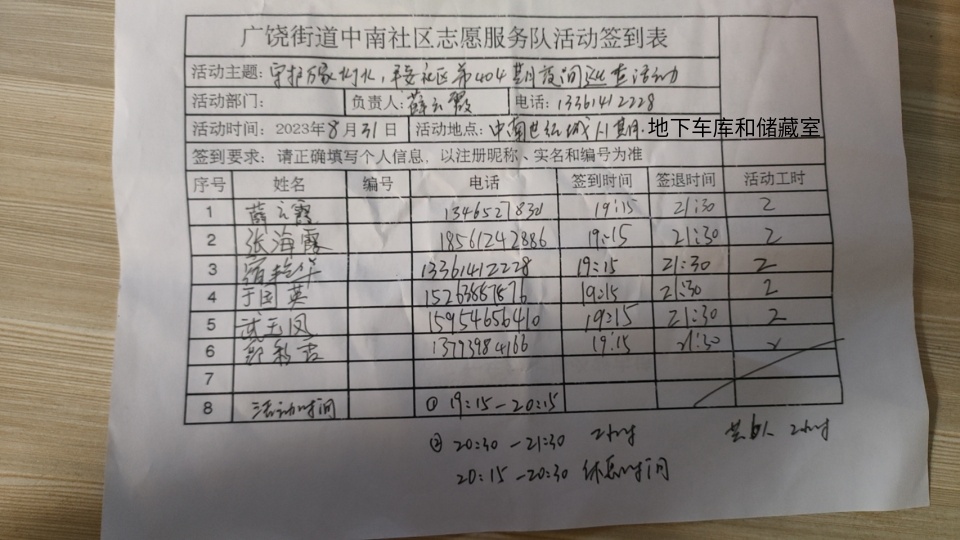 广饶街道中南社区志愿服务队活动签到表
活动主题: 守护万家灯火,平安社区第404期夜间巡查活动
活动部门: 负责人: 薛云霞 电话: 13361412228
活动时间: 2023年8月31日 活动地点: 中南世纪城 1.1期 地下车库和储藏室
签到要求: 请正确填写个人信息,以注册昵称、实名和编号为准
序号 姓名 编号 电话 签到时间 签退时间 活动工时
1 薛云霞 19:15 21:30 2
2 张海霞 18561242886 19:15 21:30 2
3 13361412228 19:15 21:30 2
4 于国英 19:15 21:30 2
5 武玉凤 15954656410 19:15 21:30 2
6 13793984166 19:15 21:30 2
7
8 活动时间 ① 19:15-20:15
② 20:30-21:30 2小时 共6人 2小时
20:15-20:30 休息时间